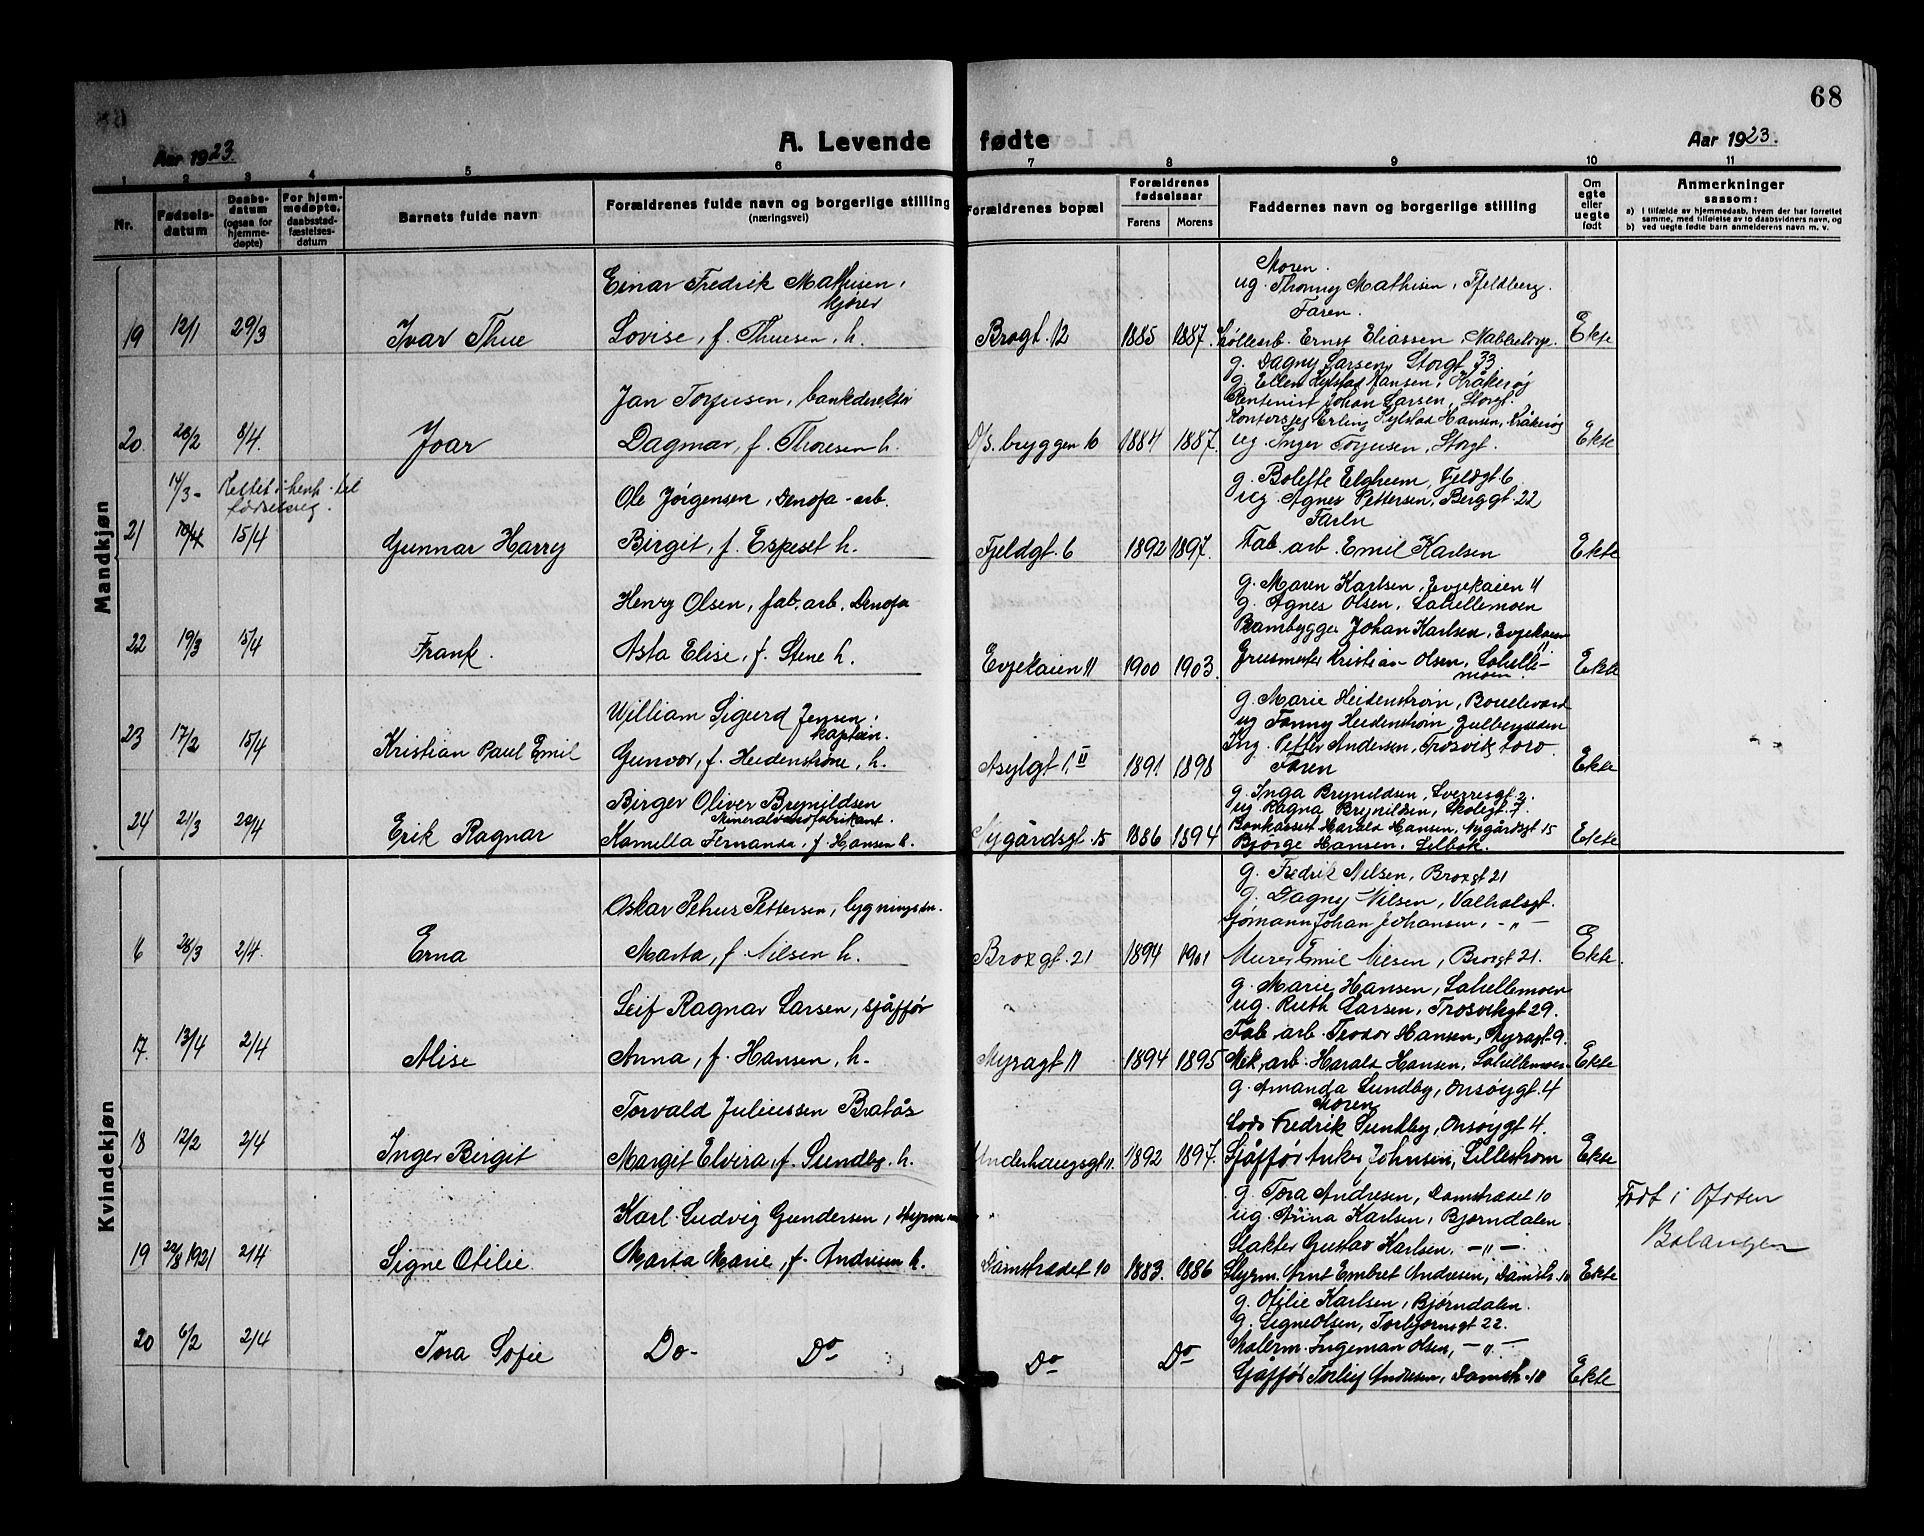 68
A. Levende fødte
Aar 1923.
Aar 1923.
1 2 3 4 5 6 7 8 9 10 11
Nr.
Fødsels-
datum
Daabs-
datum
(ogsaa for
hjemme-
døpte)
For hjem-
medøpte,
daabsstad-
fæstelses-
datum
Barnets fulde navn
Forældrenes fulde navn og borgerlige stilling
(næringsvei)
Forældrenes bopæl
Forældrenes
fødselsaar
Farens Morens
Faddernes navn og borgerlige stilling
Om
egte
eller
uegte
født
Anmerkninger
saasom:
a) i tilfælde av hjemmedaab, hvem der har forrettet
samme, med tilføielse av to daabsvidners navn, og
b) ved uegte fødte barn anmelderens navn m. v.
Mandkjøn
Einar Fredrik Mathisen,
kjører
Moren.
ug. Thonney Mathisen, Fjeldberg.
Faren.
19 12/1 29/3 Ivar Thue Lovise, f. Thuesen, h. Brogt. 12 1885 1887. Ernst Eliassen, Ekte
g. Dagny Larsen, Storgt. 33
Jan Torjusen, bankdirektør
g. Ellen Kylstad Hansen, Kråkerøy
Rentenist Johan Larsen, Storgt.
Erling Kylstad Hansen, Kråkerøy
20 28/2 8/4. Joar Dagmar, f. Thoresen h. D/s. bryggen 10 1884 1887. ug. Inger Torjusen, Storgt. Ekte
14/3 - Rettet i henh. til
fødselsreg.
Ole Jørgensen, Denofa-arb.
g. Bolette Elgheem, Fjeldgt 6
ug. Agnes Pettersen, Berggt. 22
Faren
21 10/4 15/4 Gunnar Harry Birgit, f. Espeset h. Fjeldgt. 6 1892 1897. Fab. arb. Emil Karlsen Ekte
Henry Olsen, fab. arb. Denofa
g. Maren Karlsen, Evjekaien 11
g. Agnes Olsen, Lahellemoen
Johan Karlsen, Evjekaien
11
22 19/3 15/4 Frank. Asta Elise, f. Stene h. Evjekaien 11 1900 1903. Kristian Olsen, Lahelle-
moen. Ekte
William Sigurd Jensen,
kaptein.
g. Marie Heidenstrøm, Boulevard
ug Fanny Heidenstrøm,
Ing. Petter Andersen, Trosvik
23 17/2 15/4 Kristian Paul Emil Gunvor, f. Heidenstrøm, h. Asylgt 1. II 1891 1898 Faren Ekte
Birger Oliver Brynildsen
Mineralvandfabrikant.
g. Inga Brynildsen, Sverresgt. 2.
ug. Ragna Brynildsen, Skolegt. 7.
Bankasset Harald Hansen, Nygårdsgt 15
24 21/3 20/4 Erik Ragnar Kamella Fernanda, f. Hansen h. Nygårdsgt. 15 1886 1894 Bjørge Hansen, Ekte
Kvindekjøn
Oskar Petrus Pettersen, bygningssn.
g. Fredrik Nilsen, Brogt 21
g. Dagny Nilsen, Valhalsgt.
Sjømann Johan Johansen, -„-
6 28/3 2/4. Erna Marta, f. Nilsen h. Brogt. 21 1894 1901 Murer Emil Nilsen, Brogt 21. Ekte
Leif Ragnar Larsen, sjåffør
g. Marie Hansen, Lahellemoen
ug. Ruth Larsen, Trosvikgt 29.
Fab. arb. Teodor Hansen, Myragt 9.
17 13/4 2/4 Alise Anna, f. Hansen, h. Myragt 11 1894 1895 Mek. arb. Harald Hansen, Lahellemoen Ekte
Torvald Juliussen Bratås
g. Amanda Sundby, Onsøygt. 4
Moren
Lods Fredrik Sundby, Onsøygt 4.
18 12/2 2/4 Inger Birgit Margit Elvira, f. Sundby. h. Underhaugsgt 11. 1892 1897. Sjåffør Anker Johnsen, Lillestrøm Ekte
Karl Ludvig Gundersen, styrmann
g. Tora Andresen, Damstrædet 10
ug. Anna Karlsen, Bjørndalen
Slakter Gustav Karlsen, -„-
Født i Ofoten
Balangen
19 22/8 1921 2/4 Signe Otilie Marta Marie, f. Andresen h. Damstrædet 10 1883. 1886 Styrm. Arnt Embret Andresen, Damstr. 10 Ekte
g. Otilie Karlsen, Bjørndalen.
g. Signe Olsen, Torbjørnsgt 22.
Malerm. Ingeman Olsen, -„-
20 6/2 2/4 Tora Sofie Do- Do Do Do Sjåffør Torleif Andresen, Damstr. 10 Ekte